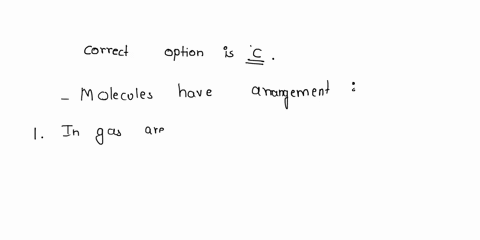 correct option is C.
- Molecules have arrangement :
1. In gas are